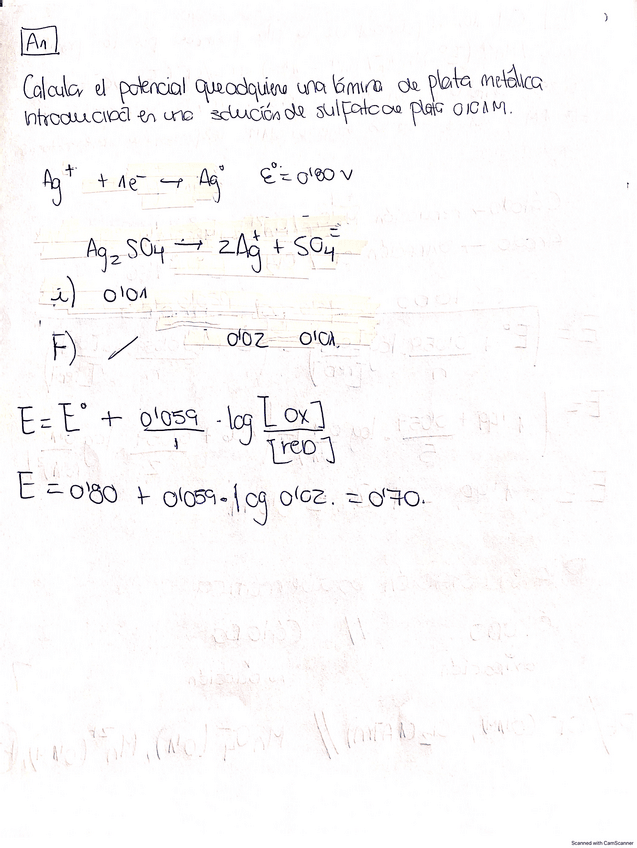 A1
Calcular el potencial que adquiere una lámina de plata metálica
introducida en una solución de sulfato de plata 0'01M.
Ag⁺ + 1e⁻ → Ag° ε°= 0'80 V
Ag₂SO₄ → 2Ag⁺ + SO₄⁼
i) 0'01
F) / 0'02 0'01.
E = E° + 0'059/1 · log [OX]/[RED]
E = 0'80 + 0'059 · log 0'02. = 0'70.
Scanned with CamScanner